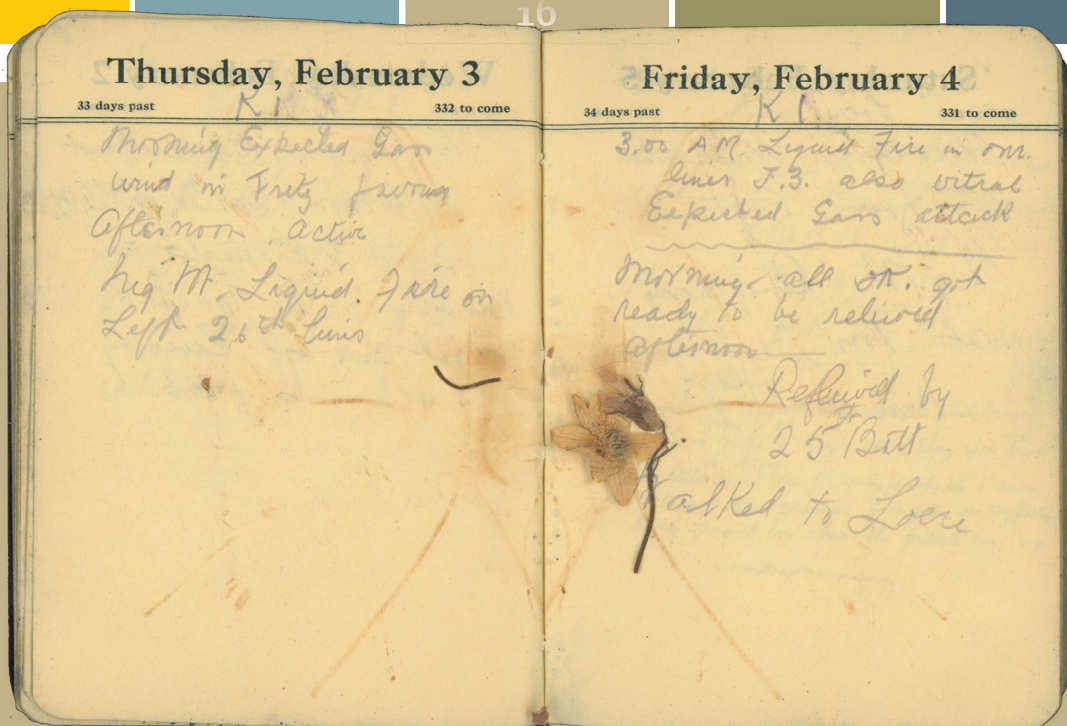 16
Thursday, February 3
33 days past
332 to come
Morning Expected Gass
wind in Fritz favour
Afternoon Active
Liquid Fire on
Left 26th lines
Friday, February 4
34 days past
331 to come
3.00 AM Liquid Fire in our
lines J.3. also vitral
Expected Gass attack
Morning all OK. got
ready to be relieved
afternoon
Relieved by
25th Batt
Walked to Locre